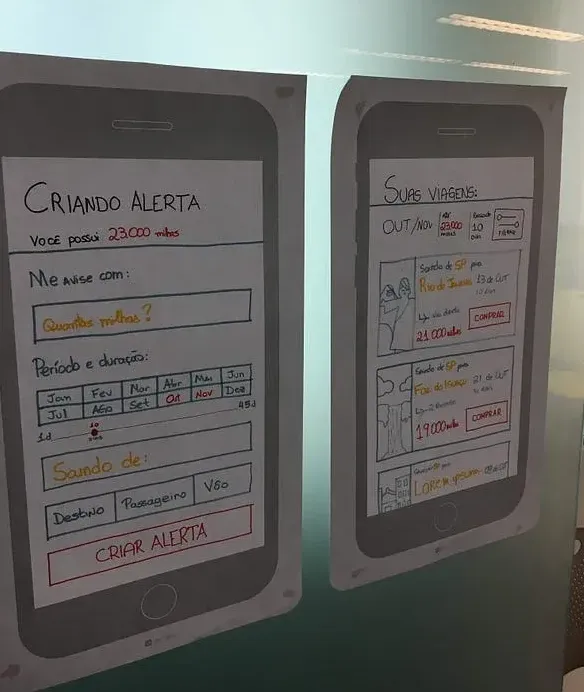 CRIANDO ALERTA
VOCÊ POSSUI 23.000 milhas
Me AVISE COM:
Quantas milhas?
Período e duração:
Jan Fev Mar Abr Mai Jun
Jul AGO Set Out Nov Dez
1d 10 DIAS 45d
Saindo de:
Destino Passageiro Vôo
CRIAR ALERTA
SUAS VIAGENS:
OUT/NOV ATÉ 23.000 milhas 10 DIAS FILTRAR
Saindo de SP para
Rio de Janeiro 13 de OUT
10 dias
Vôo direto
21.000 milhas COMPRAR
Saindo de SP para
Foz do Iguaçu 21 de OUT
19.000 milhas COMPRAR
Saindo de SP para
Lorem ipsum